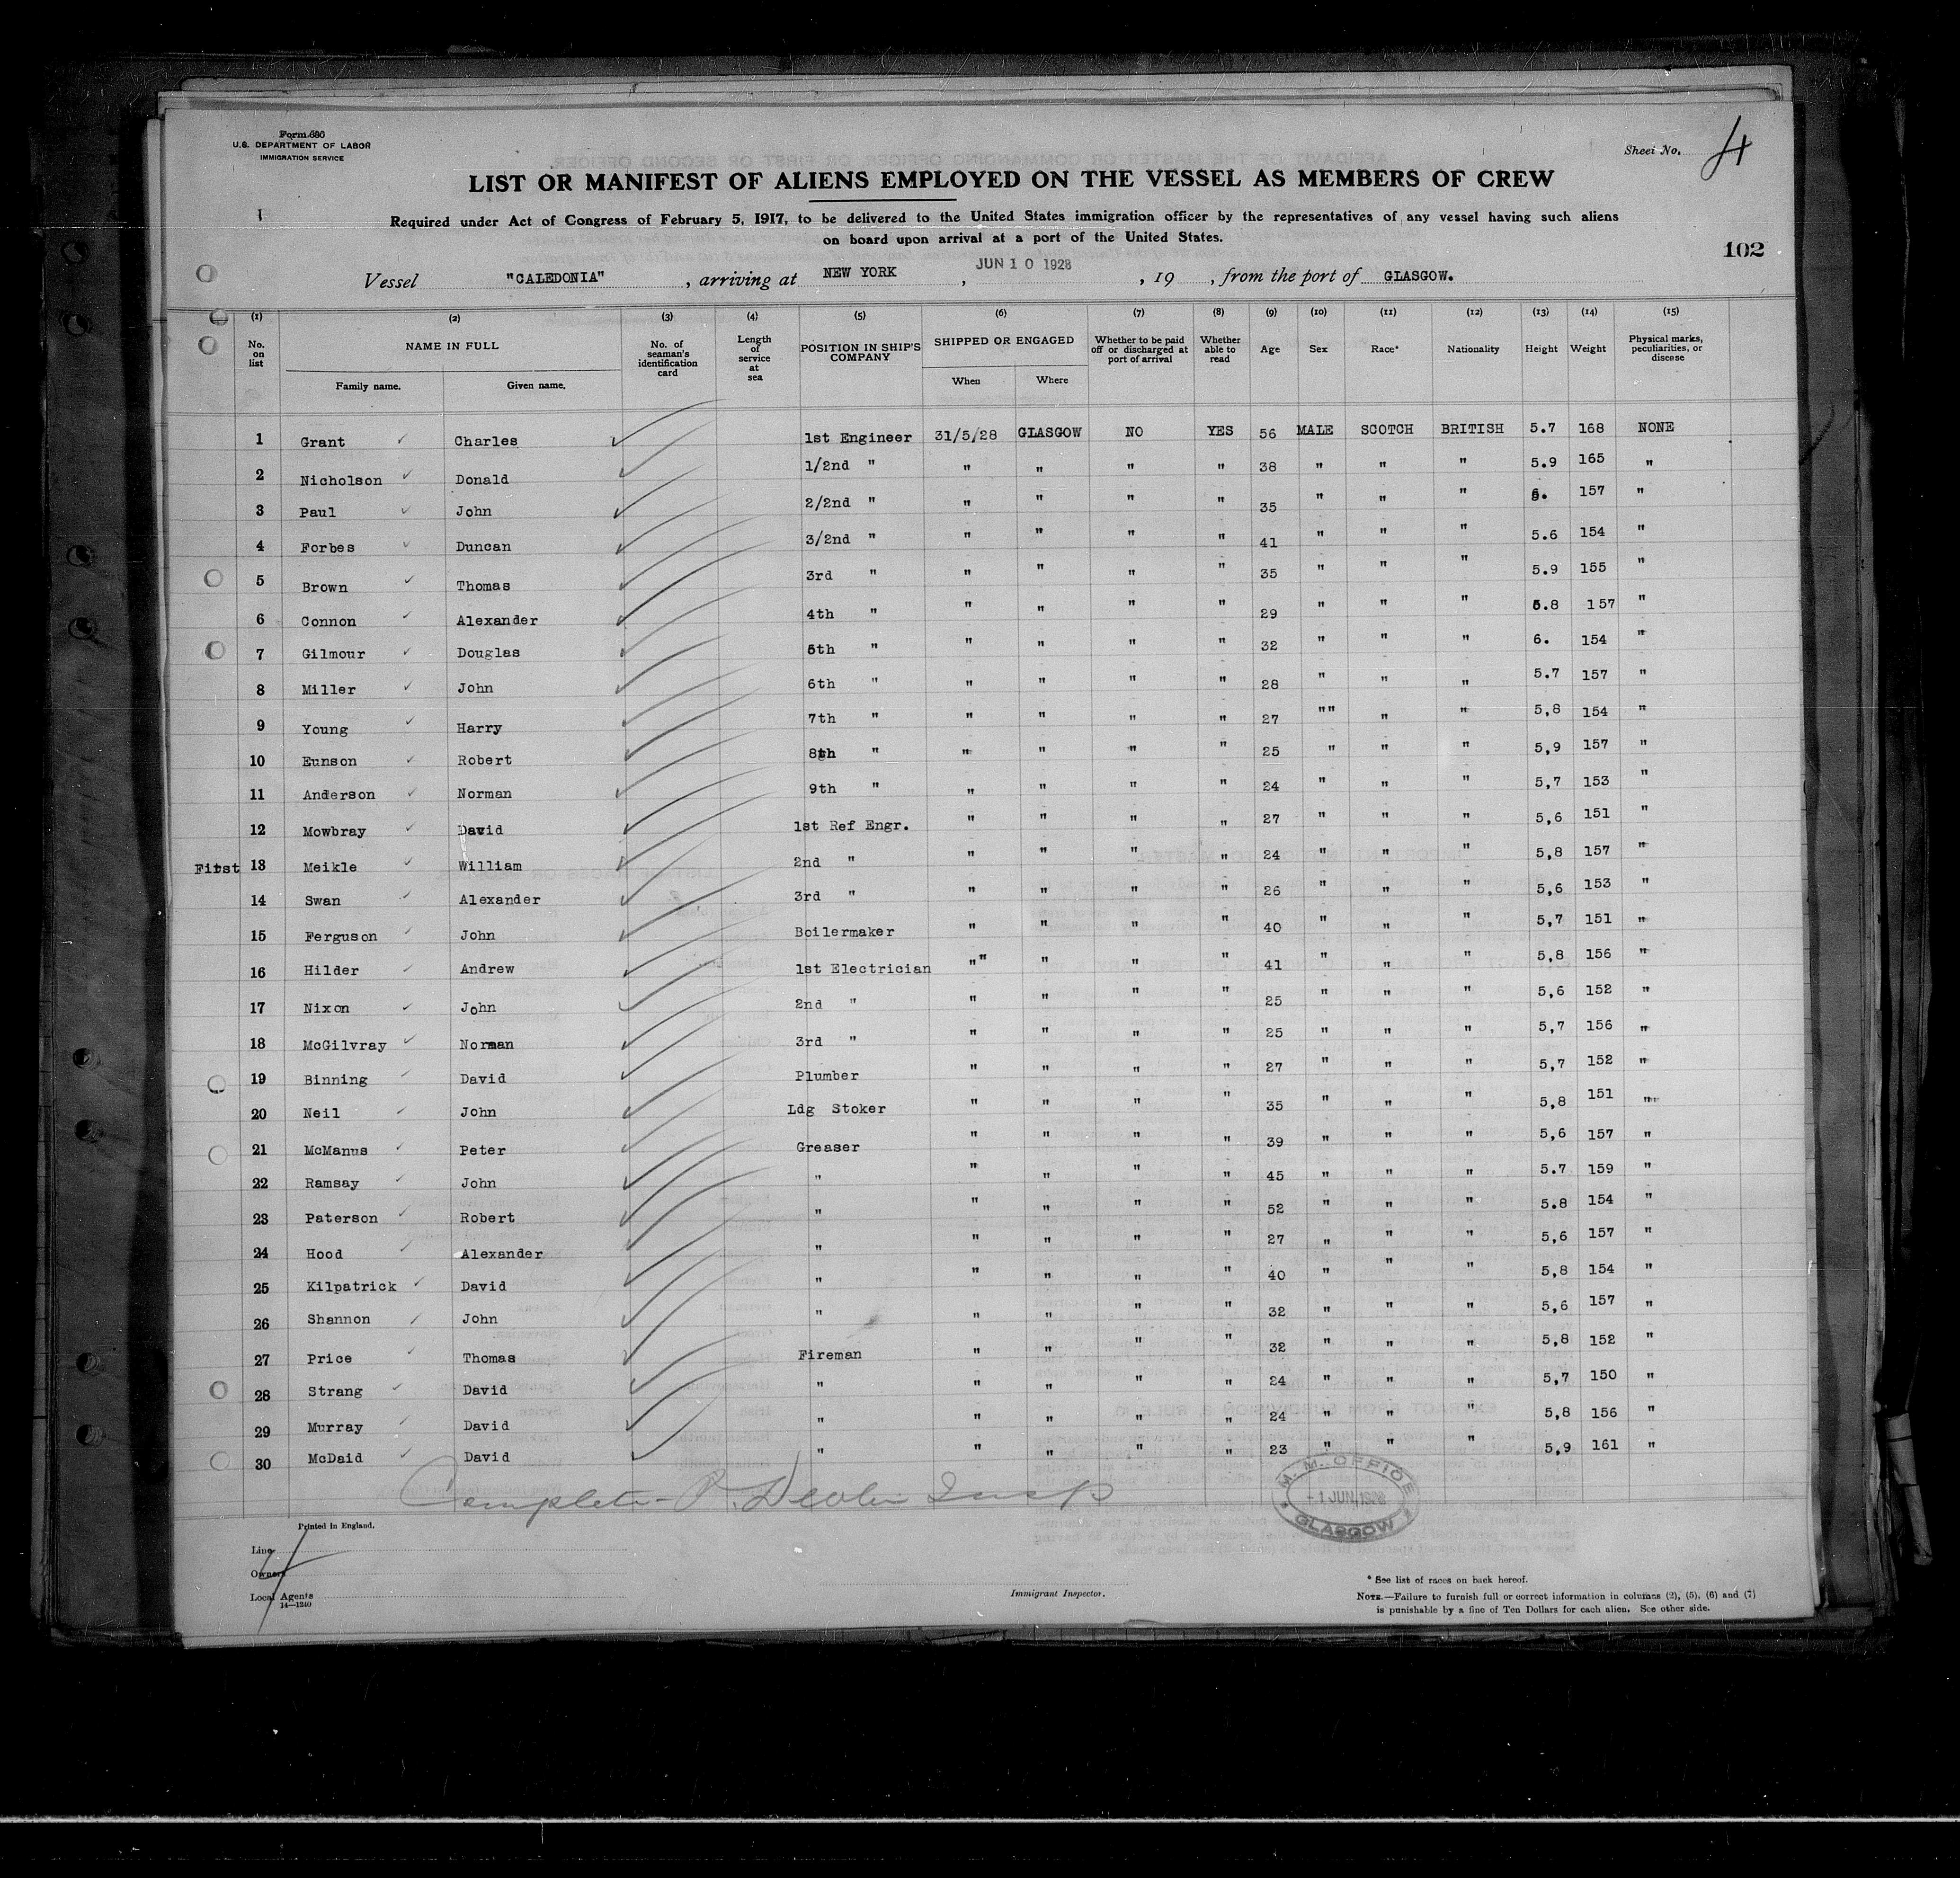 Form 686
U.S. DEPARTMENT OF LABOR
IMMIGRATION SERVICE
Sheet No. 4
LIST OR MANIFEST OF ALIENS EMPLOYED ON THE VESSEL AS MEMBERS OF CREW
Required under Act of Congress of February 5, 1917, to be delivered to the United States immigration officer by the representatives of any vessel having such aliens
on board upon arrival at a port of the United States.
102
Vessel "CALEDONIA" , arriving at NEW YORK , JUN 10 1928 , 19 , from the port of GLASGOW.
(1) (2) (3) (4) (5) (6) (7) (8) (9) (10) (11) (12) (13) (14) (15)
No. on list NAME IN FULL No. of seaman's identification card Length of service at sea POSITION IN SHIP'S COMPANY SHIPPED OR ENGAGED Whether to be paid off or discharged at port of arrival Whether able to read Age Sex Race* Nationality Height Weight Physical marks, peculiarities, or disease
Family name. Given name. When Where
1 Grant Charles 1st Engineer 31/5/28 GLASGOW NO YES 56 MALE SCOTCH BRITISH 5.7 168 NONE
2 Nicholson Donald 1/2nd " " " " " 38 " " " 5.9 165 "
3 Paul John 2/2nd " " " " " 35 " " " 6. 157 "
4 Forbes Duncan 3/2nd " " " " " 41 " " " 5.6 154 "
5 Brown Thomas 3rd " " " " " 35 " " " 5.9 155 "
6 Connon Alexander 4th " " " " " 29 " " " 5.8 157 "
7 Gilmour Douglas 5th " " " " " 32 " " " 6. 154 "
8 Miller John 6th " " " " " 28 " " " 5.7 157 "
9 Young Harry 7th " " " " " 27 "" " " 5,8 154 "
10 Eunson Robert 8th " " " " " 25 " " " 5,9 157 "
11 Anderson Norman 9th " " " " " 24 " " " 5,7 153 "
12 Mowbray David 1st Ref Engr. " " " " 27 " " " 5,6 151 "
First 13 Meikle William 2nd " " " " " 24 " " " 5,8 157 "
14 Swan Alexander 3rd " " " " " 26 " " " 5,6 153 "
15 Ferguson John Boilermaker " " " " 40 " " " 5,7 151 "
16 Hilder Andrew 1st Electrician "" " " " 41 " " " 5,8 156 "
17 Nixon John 2nd " " " " " 25 " " " 5,6 152 "
18 McGilvray Norman 3rd " " " " " 25 " " " 5,7 156 "
19 Binning David Plumber " " " " 27 " " " 5,7 152 "
20 Neil John Ldg Stoker " " " " 35 " " " 5,8 151 ""
21 McManus Peter Greaser " " " " 39 " " " 5,6 157 "
22 Ramsay John " " " " " 45 " " " 5.7 159 "
23 Paterson Robert " " " " " 52 " " " 5.8 154 "
24 Hood Alexander " " " " " 27 " " " 5,6 157 "
25 Kilpatrick David " " " " " 40 " " " 5,8 154 "
26 Shannon John " " " " " 32 " " " 5,6 157 "
27 Price Thomas Fireman " " " " 32 " " " 5,8 152 "
28 Strang David " " " " " 24 " " " 5,7 150 "
29 Murray David " " " " " 24 " " " 5,8 156 "
30 McDaid David " " " " " 23 " " " 5,9 161 "
Complete
M. M. OFFICE
-1 JUN 1928
GLASGOW
Printed in England.
Line
Owners
Local Agents
14—1240
Immigrant Inspector.
* See list of races on back hereof.
NOTE.—Failure to furnish full or correct information in columns (2), (5), (6) and (7)
is punishable by a fine of Ten Dollars for each alien. See other side.